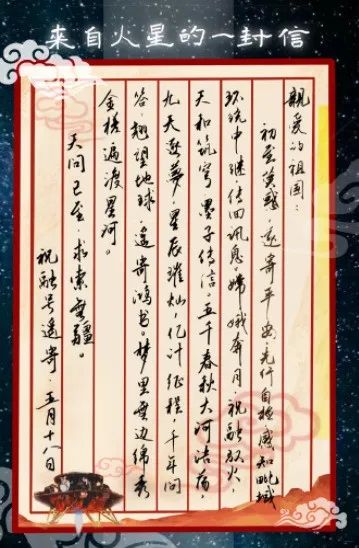 来自火星的一封信
親爱的祖国：
初至荧惑，遥寄平安。先行自检，感知毗域
环绕中继，传回讯息。嫦娥奔月，祝融取火，
天和筑穹，墨子传信。五千春秋大河浩荡，
九天逐夢，星辰璀灿，亿计征程，千年问
答。翘望地球，遥寄鸿书。梦里無边锦秀
金槎遍渡星河。
天问已至，求索無疆。
祝融号遥寄·五月十八日